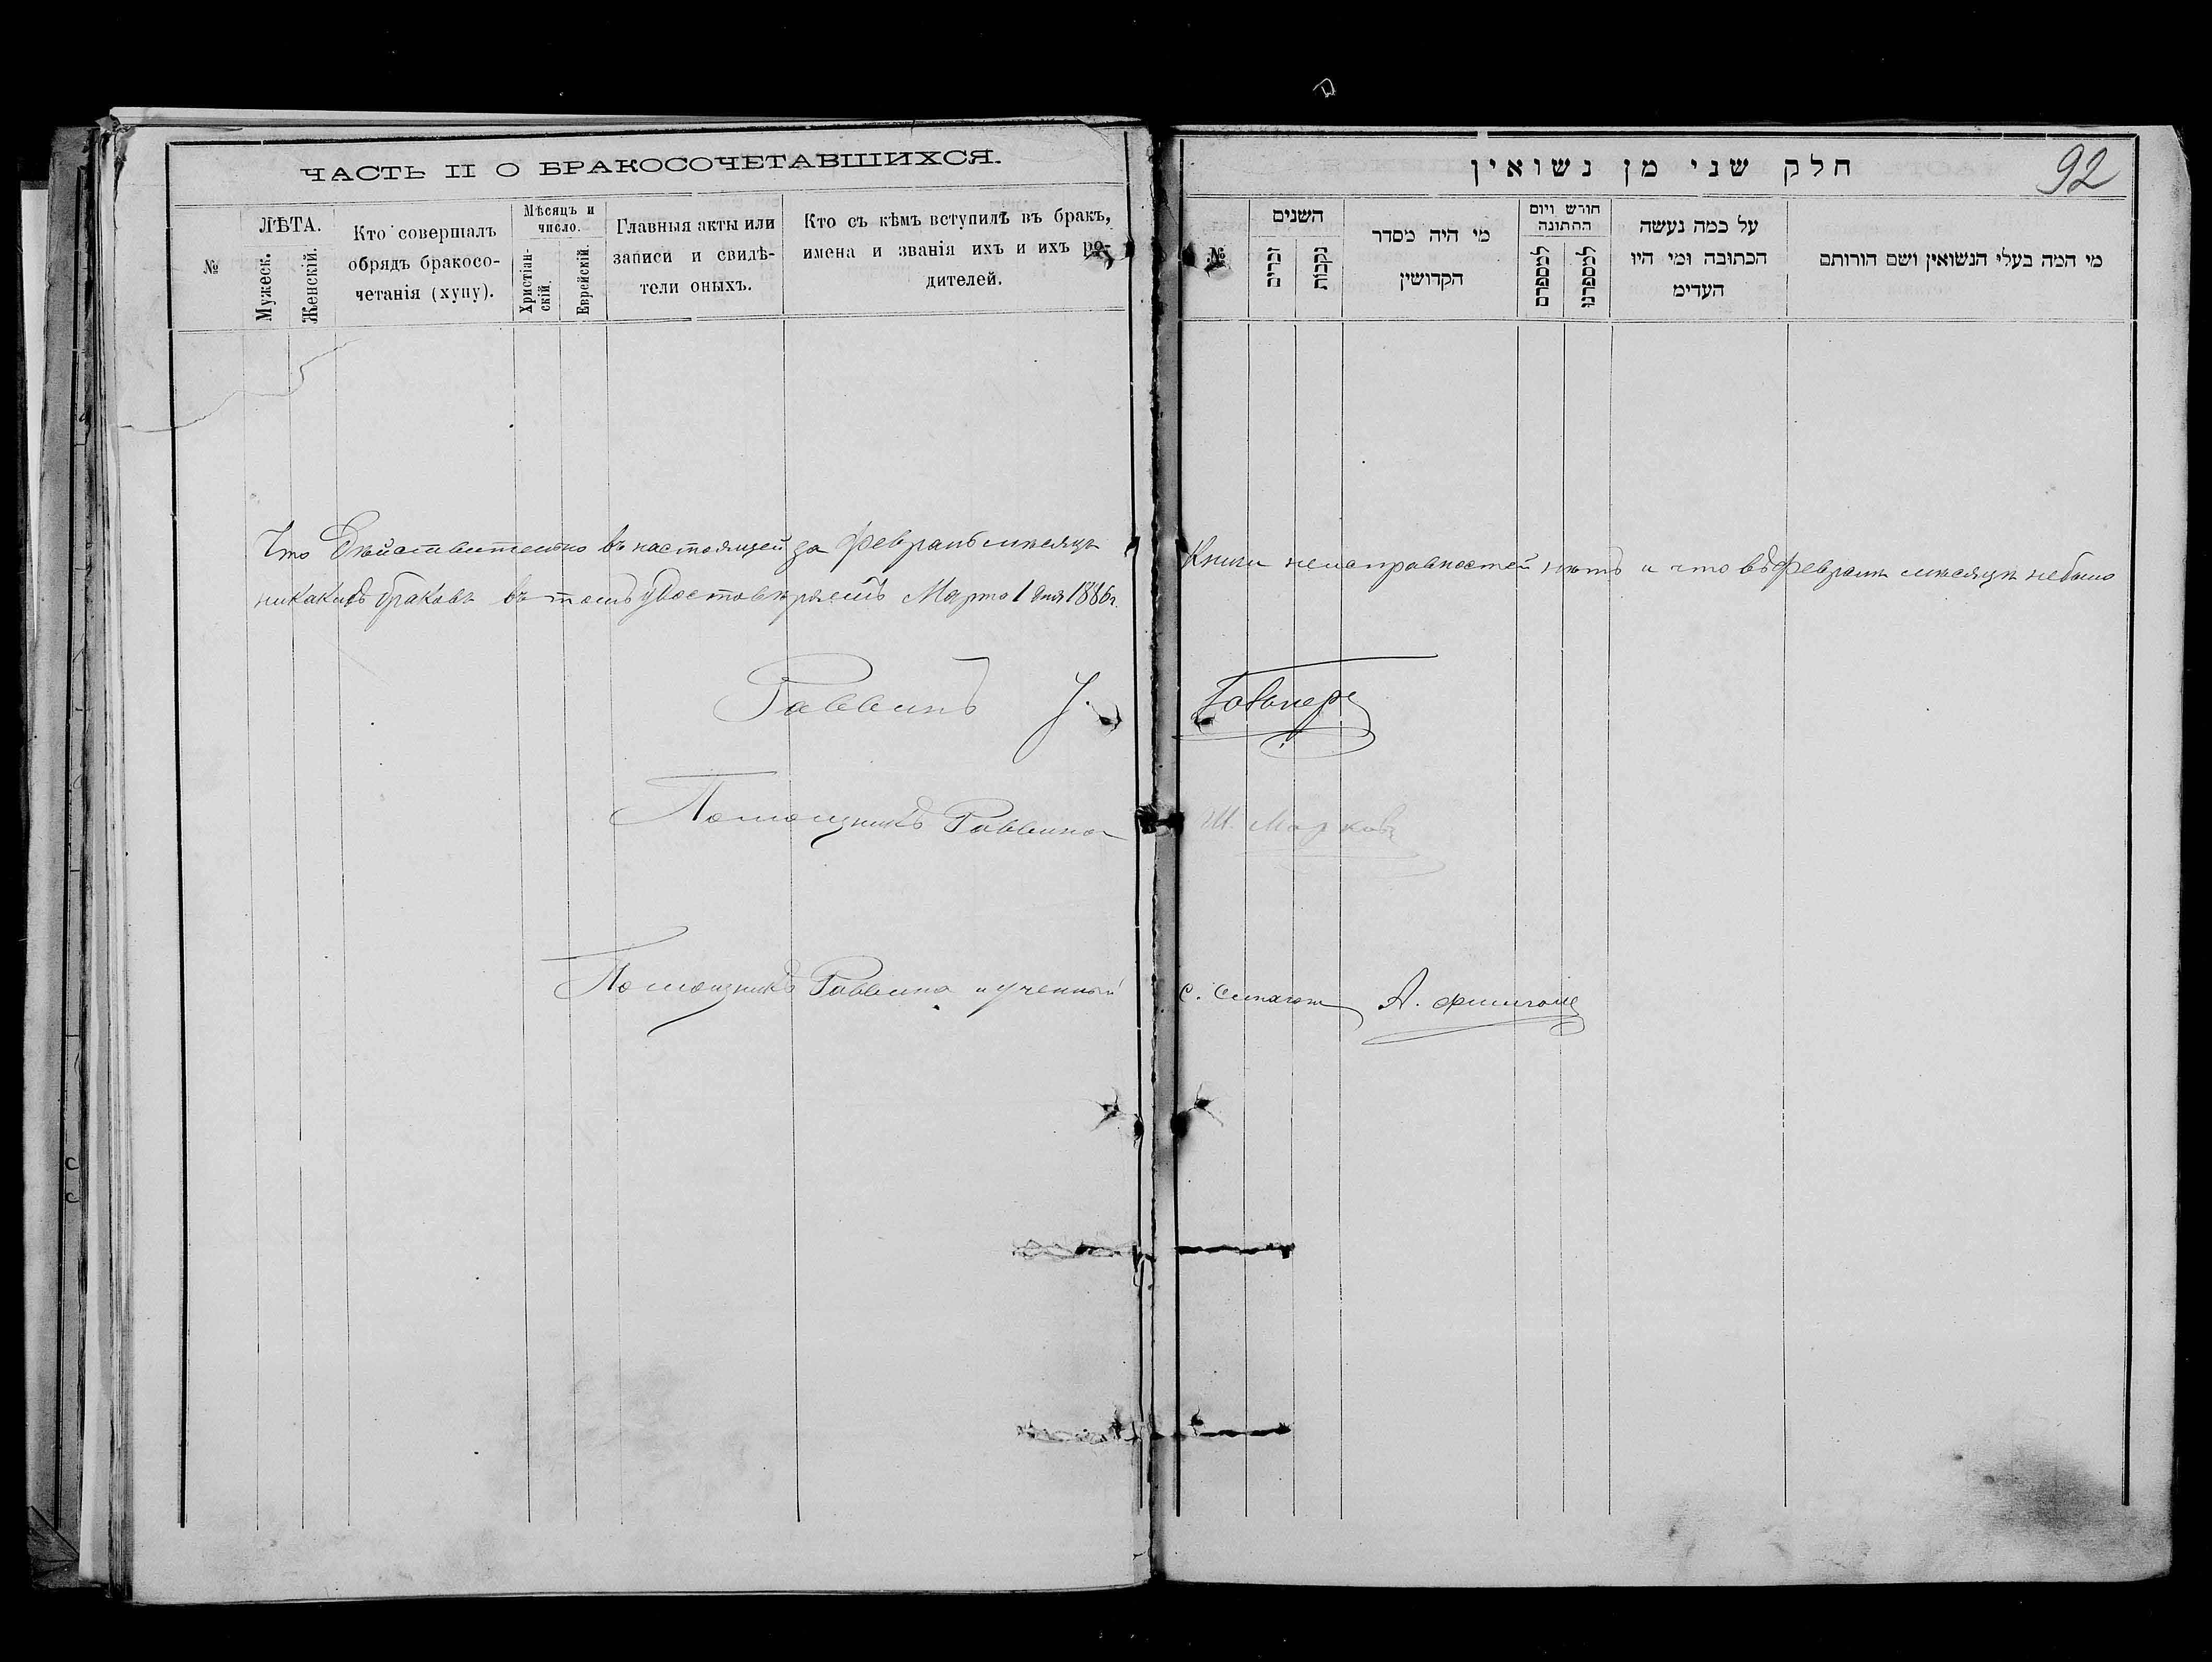 ЧАСТЬ II О БРАКОСОЧЕТАВШИХСЯ.
№
ЛѢТА.
Мужеск.
Женскій.
Кто совершалъ
обрядъ бракосо-
четанія (хупу).
Мѣсяцъ и
число.
Христіан-
скій.
Еврейскій.
Главныя акты или
записи и свидѣ-
тели оныхъ.
Кто съ кѣмъ вступилъ въ бракъ,
имена и званія ихъ и ихъ ро-
дителей.
חלק שני מן נשואין
92
№
השנים
זכרים
נקבות
מי היה מסדר
הקדושין
חורש ויום
החתונה
למספרם
למספרנו
על כמה נעשה
הכתובה ומי היו
העדימ
מי המה בעלי הנשואין ושם הורותם
Что дѣйствительно въ настоящей за февраль мѣсяцъ Книги неисправностей нѣтъ и что въ февралѣ мѣсяцѣ небыло
никакихъ браковъ въ томъ удостовѣряемъ Марта 1 дня 1886г.
Раввинъ
Помощникъ Раввина Ш. Марковъ
Помощникъ Раввина и ученный А.